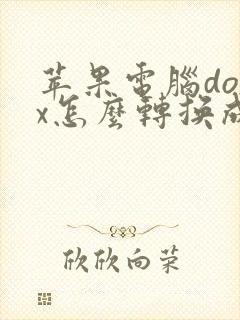 苹果電腦do
x怎麼轉換成
欣欣向荣